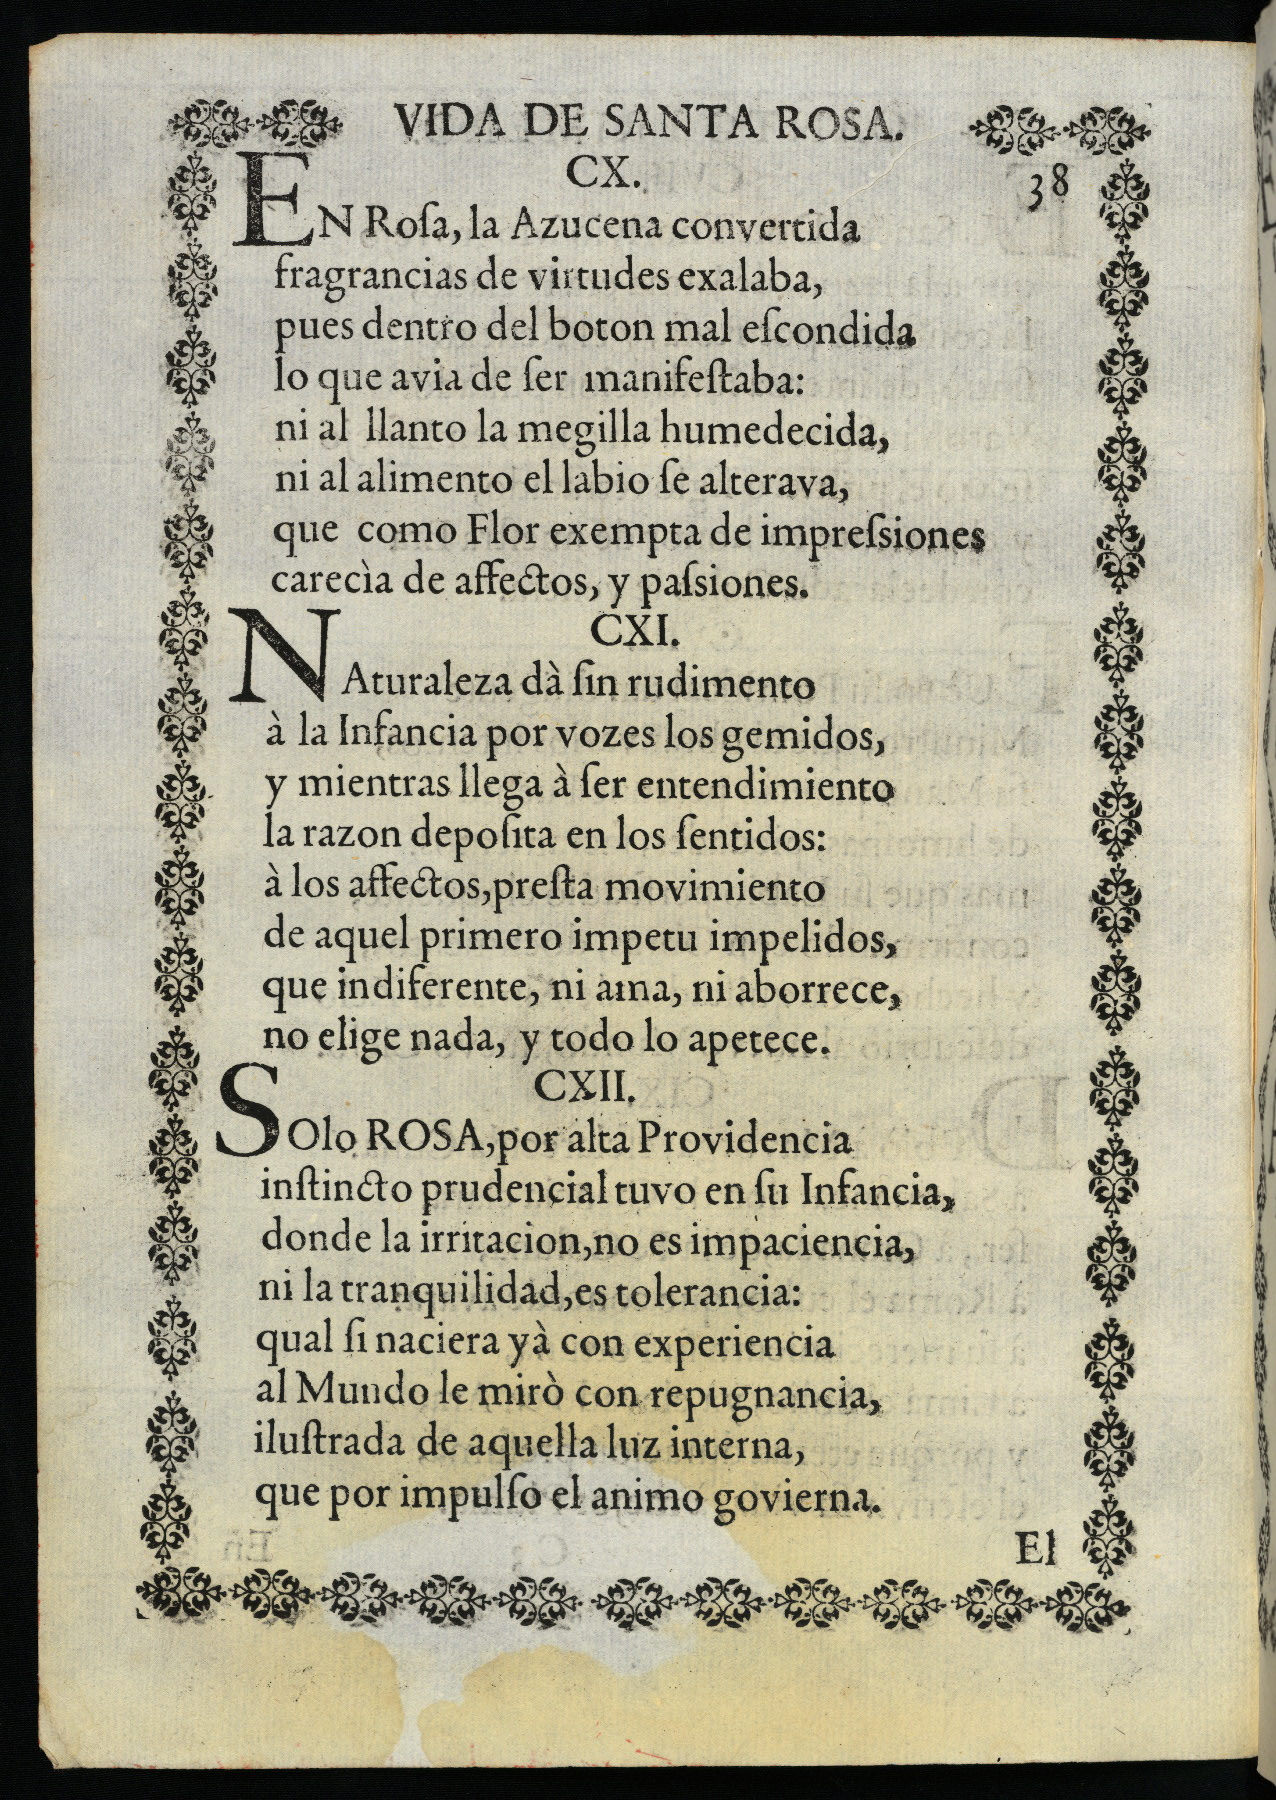 VIDA DE SANTA ROSA.
CX.
38
EN Roſa, la Azucena convertida
fragrancias de virtudes exalaba,
pues dentro del boton mal eſcondida
lo que avia de ſer manifeſtaba:
ni al llanto la megilla humedecida,
ni al alimento el labio ſe alterava,
que como Flor exempta de impreſsiones
carecìa de affectos, y paſsiones.
CXI.
NAturaleza dà ſin rudimento
à la Infancia por vozes los gemidos,
y mientras llega à ſer entendimiento
la razon depoſita en los ſentidos:
à los affectos,preſta movimiento
de aquel primero impetu impelidos,
que indiferente, ni ama, ni aborrece,
no elige nada, y todo lo apetece.
CXII.
SOlo ROSA,por alta Providencia
inſtincto prudencial tuvo en ſu Infancia,
donde la irritacion,no es impaciencia,
ni la tranquilidad,es tolerancia:
qual ſi naciera yà con experiencia
al Mundo le mirò con repugnancia,
iluſtrada de aquella luz interna,
que por impulſo el animo govierna.
El